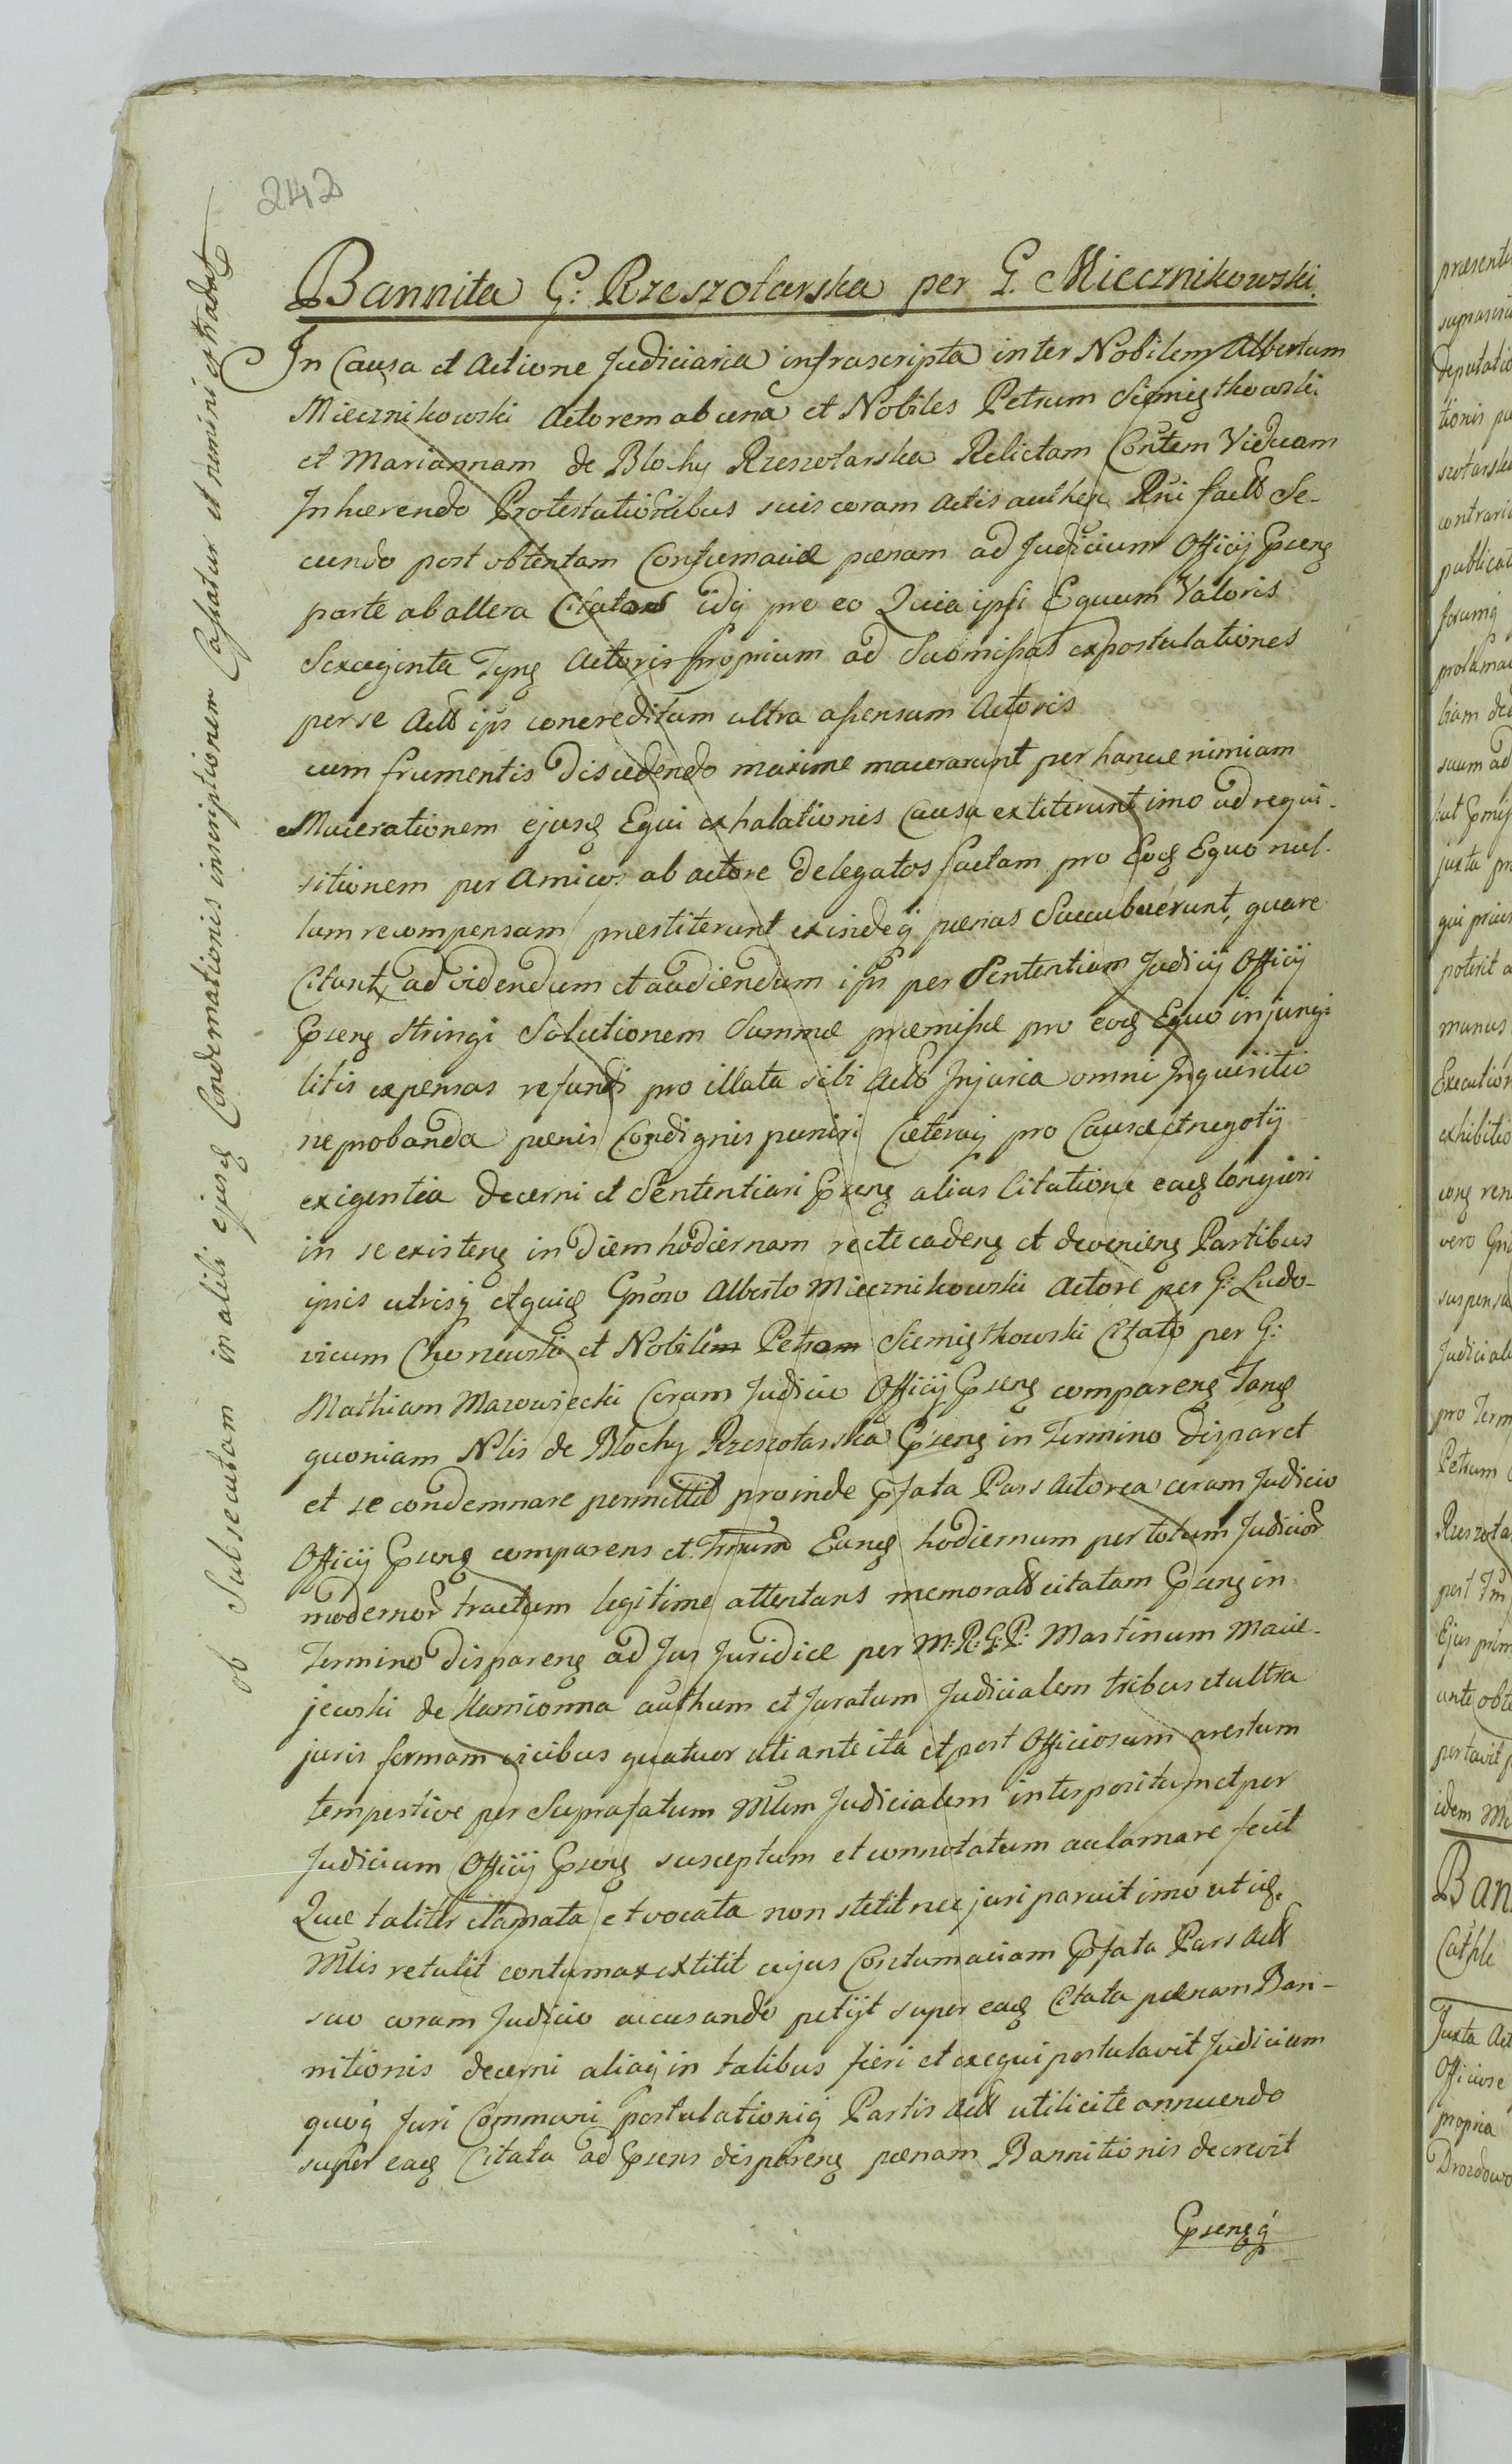 242
Bannita G: Rzeszotarska per G. Miecznikowski
In Causa et Actione Judiciaria infrascripta inter Nobilem Albertum
Miecznikowski Actorem ab una et Nobiles Petrum Siemiątkowski
et Mariannam de Blochy Rzeszotarska Relictam Contem Viduam
Inhærendo Protestationibus suis coram Actis authen Rni fact Se-
cundo post obtentam Contumaciæ pænam ad Judicium Officij Psens
parte ab altera Citatos idq pro eo Quia ipsi Equum Valoris
Sexaginta Tynf Actoris proprium ad Submissas expostulationes
per se Act ips concreditum ultra assensum Actoris
cum frumentis discedendo maxime macerarunt per hancce nimiam
Macerationem ejusq Equi exhalationis Causa extiterunt imo ad requi-
sitionem per Amicos ab actore delegatos factam pro Eoq Equo nul-
lam recompensam præstiterunt exindeq pænas Succubuerunt, quare
Citant, ad videndum et audiendum ips per Sententiam Judicij Officij
Psens stringi Solutionem Summæ præmissæ pro eoq Equo injungi
litis expensas refundi pro illata sibi Acto Injuria omni Inquisitio
ne probanda pænis Condignis puniri Cæteraq pro Causæ et negotij
exigentia decerni et Sententiari Psens alias Citatione eaq longiori
in se existens in diem hodiernam recte cadens et deveniens Partibus
ipsis utrisq et quiq Gnoso Alberto Miecznikowski Actore per G: Ludo-
vicum Chonewski et Nobilem Petrom Siemiątkowski Citato per G:
Mathiam Mazowiecki Coram Judicio Officij Psens comparens Tanq
quoniam Nlis de Blochy Rzeszotarska Psens in Termino disparet
et se condemnare permittit proinde Pfata Pars Actorea coram Judicio
Officij Psens comparens et Tmum Eunq hodiernum per totum Judicior
modernor tractum legitime attentans memorat citatam Psens in
Termino dispareng ad Jus Juridice per M: R: G: P: Martinum Macie-
jewski de Kamionna authum et Juratum Judicialem tribus et ultra
juris formam vicibus quatuor uti ante ita et post Officiosum arestum
tempestive per Suprafatum Mlem Judicialem interpositum et per
Judicium Officij Psens susceptum et connotatum acclamare fecit
Quæ taliter clamata et vocata non stetit nec juri paruit imo ut iq.
Mlis retulit contumax extitit cujus Contumaciam Pfata Pars Act
suo coram Judicio accusando petijt super eaq Citata pænam Ban-
nitionis decerni aliaq in talibus fieri et exequi postulavit Judicium
quoq Juri Communi postulationiq Partis Act utilicite annuendo
super eaq Citata ad Psens dispareng pænam Bannitionis decrevit
Psensq
ob Subsecutam in alili ejusq Condemnationis inscriptionem Cassatur et nemini extradat
præsenti
deputatio
tionis
szotarska
contrario
publicat
forumq
suum ad
juxta
poterit
manus
Execution
exhibitio
vero
suspensa
Judicial
pro Term
Petrum
Rzeszota
post
Ejus prim
ante obte
portavit
idem
Ban
Cathle
Juxta Act
Officiose
propria
Drozdowo